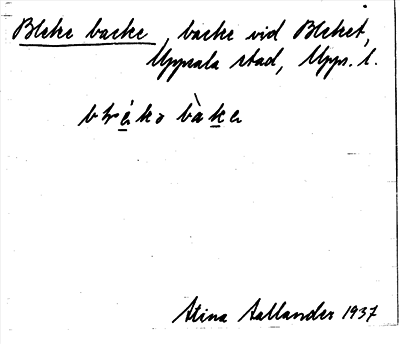 Bleke backe, backe vid Bleket,
Uppsala stad, Upps. l.
bàke
Stina Aallander 1937